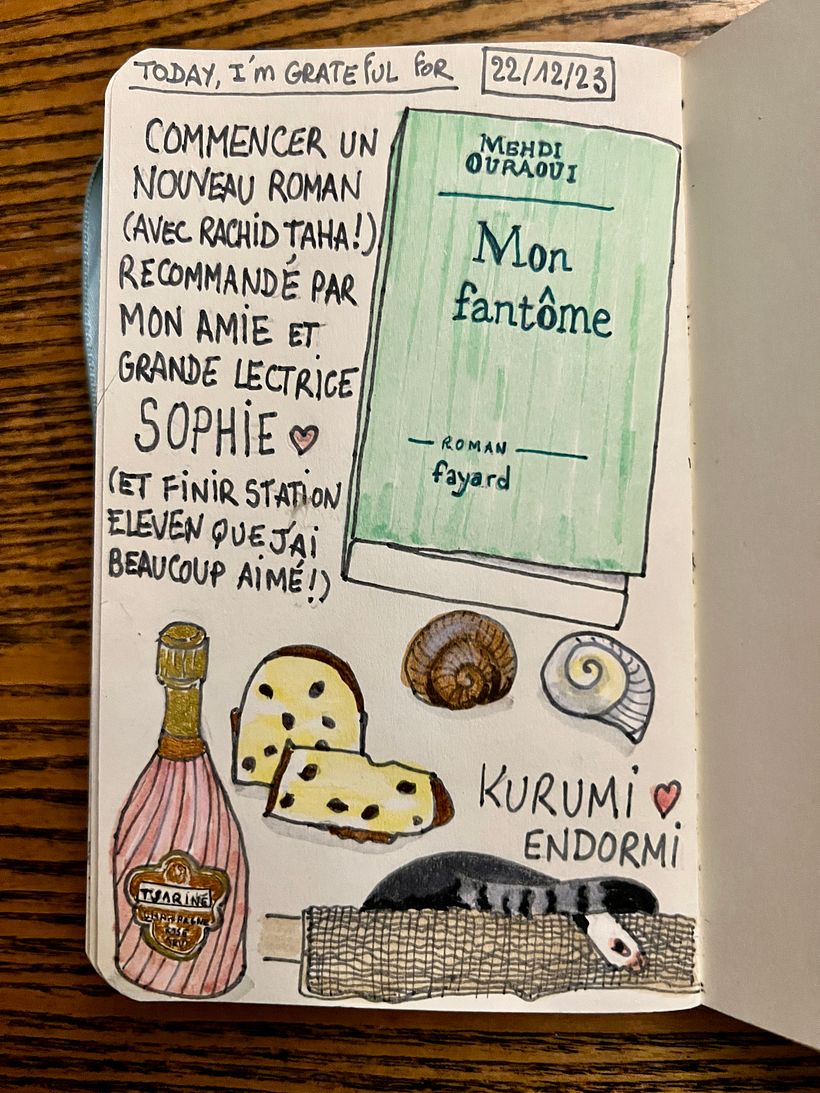 TODAY, I'm GRATEFUL FOR
22/12/23
COMMENCER UN
NOUVEAU ROMAN
(AVEC RACHID TAHA!)
RECOMMANDÉ PAR
MON AMIE ET
GRANDE LECTRICE
SOPHIE
(ET FINIR STATION
ELEVEN QUE J'AI
BEAUCOUP AIMÉ!)
MEHDI
OURAOUI
Mon
fantôme
ROMAN
fayard
KURUMI
ENDORMI
TSARINE
CHAMPAGNE
ROSÉ